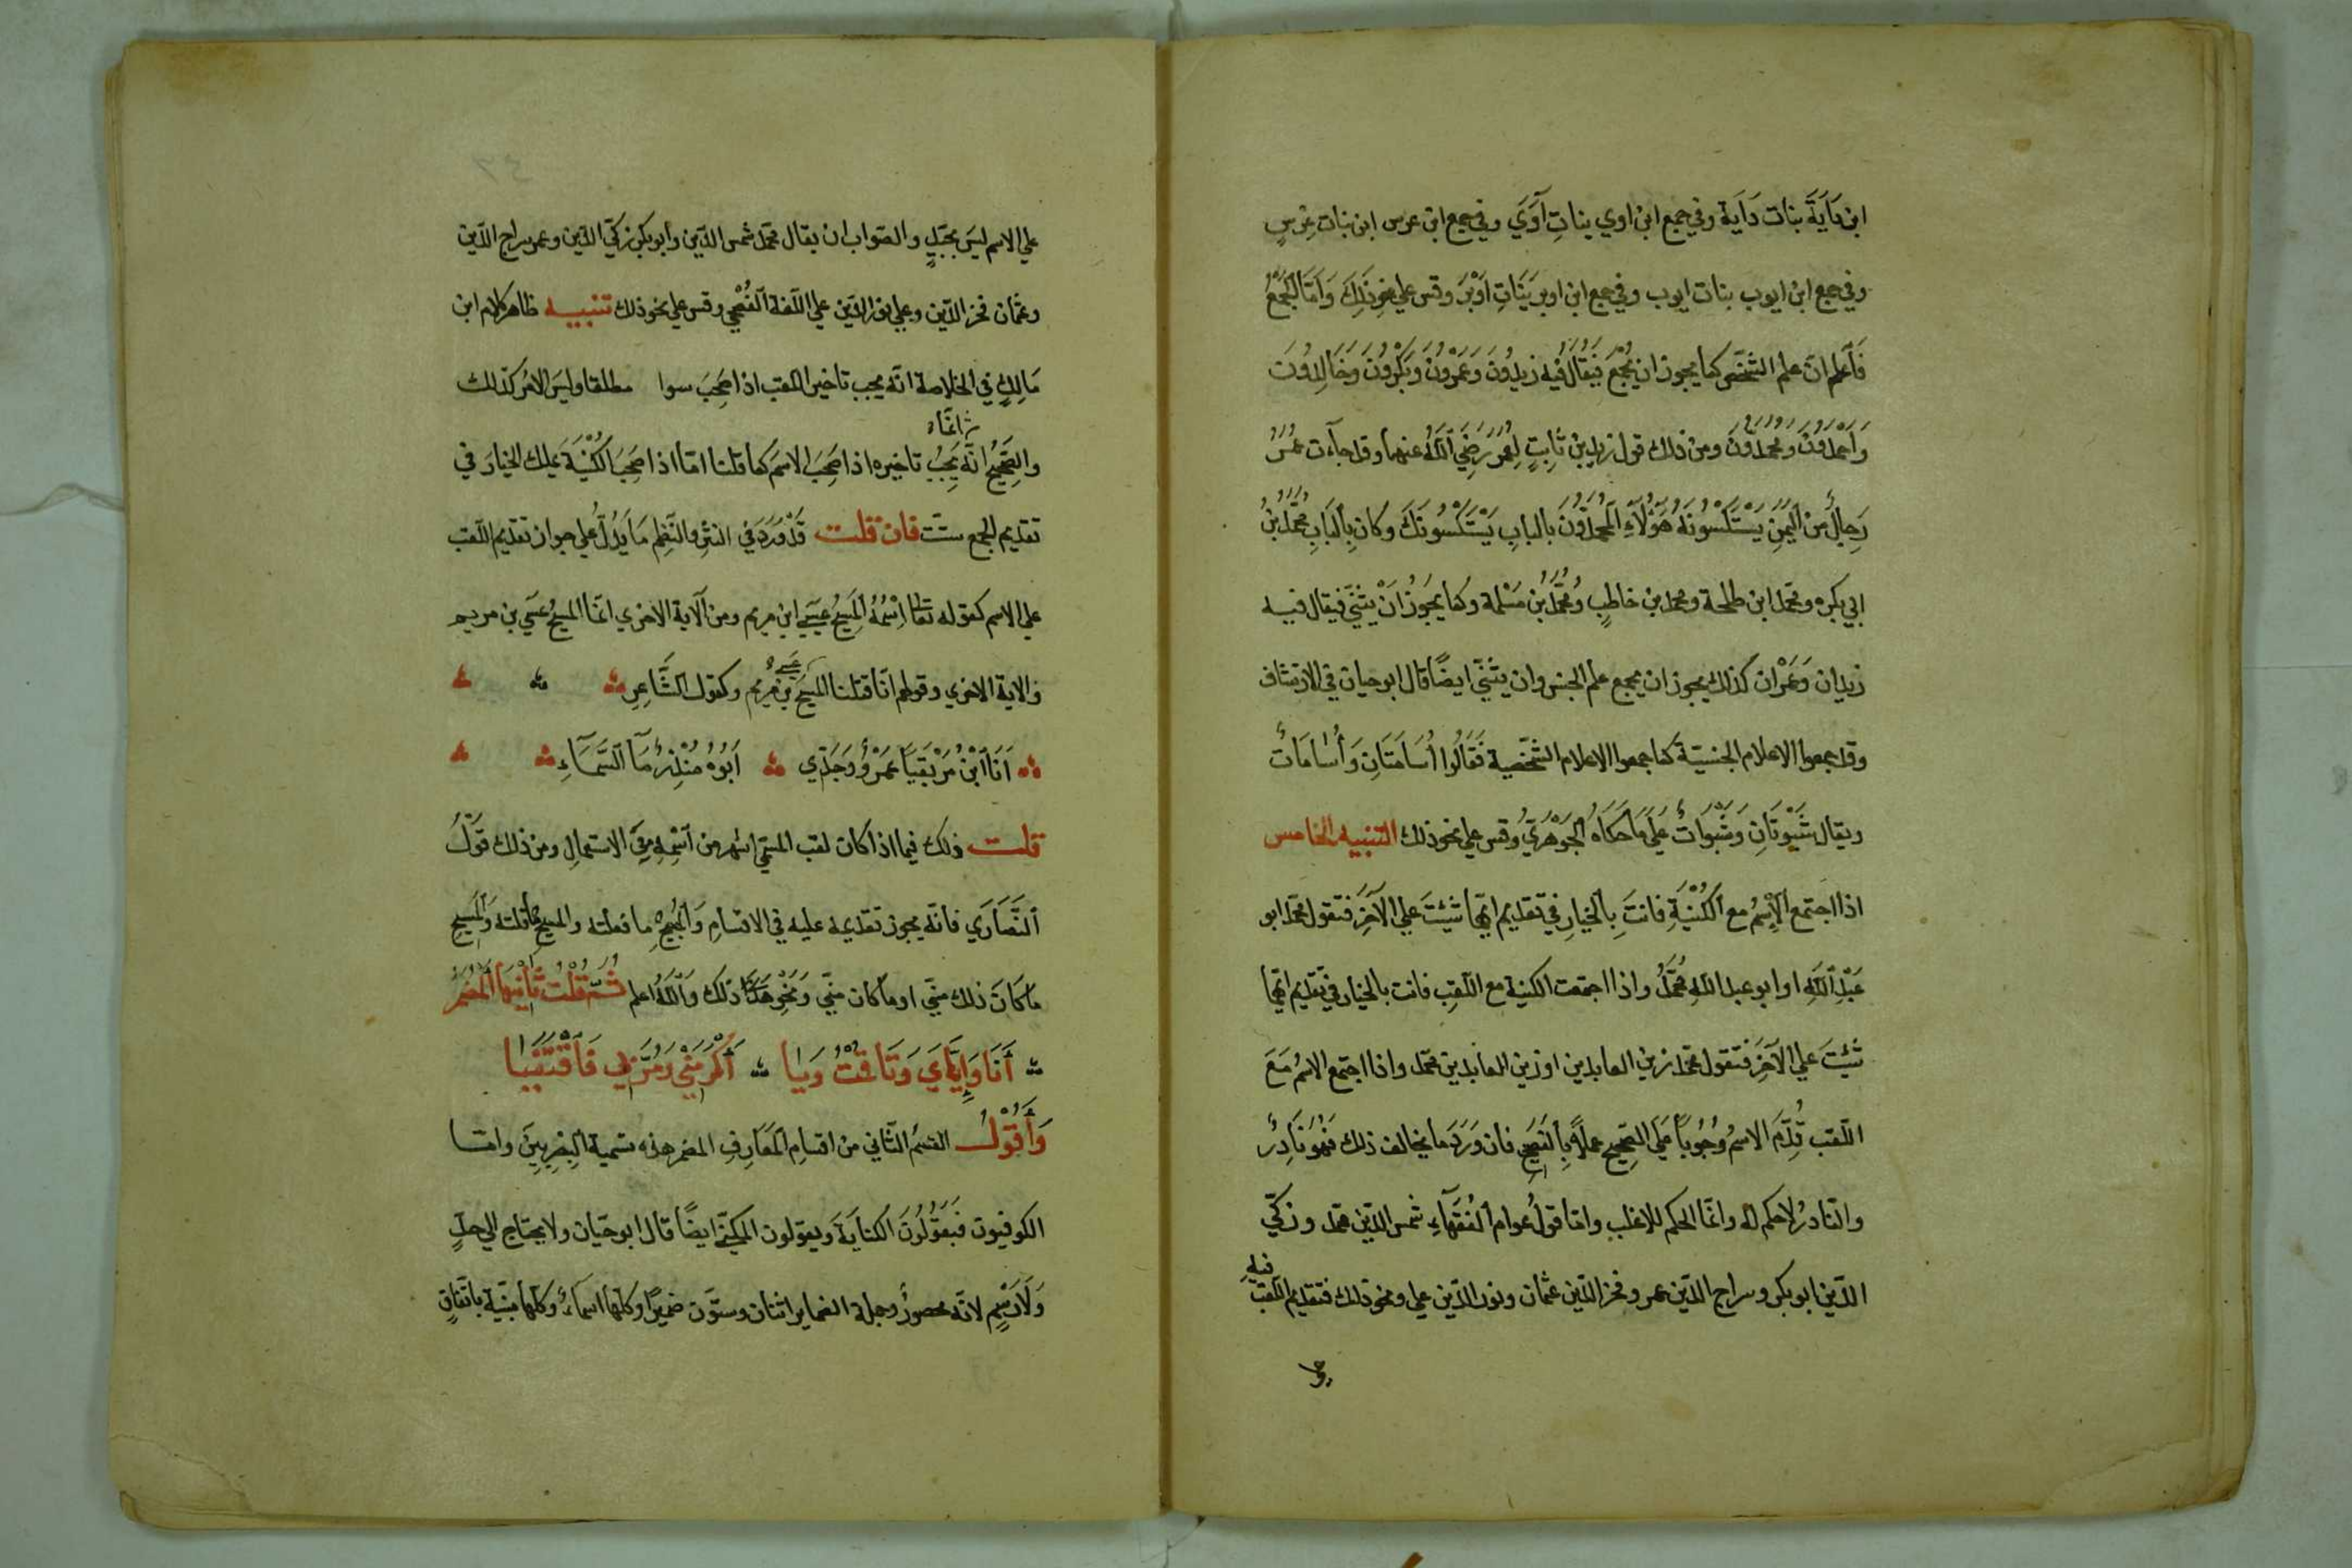 ابن دَايَةَ بنات دَاية وفي جمع ابن اوي بناتِ آوَي وفي جمع ابن عرس ابن بنات عِرْسٍ
وفي جمع ابن ايوب بنات ايوب وفي جمع ابن اوبر بَنَاتِ اَوْبَرَ وقس علي نحوِ ذَلِكَ وَاَمَّا الجَمْعُ
فَاَعلم انّ علم الشَّخْصِ كما يجوز ان يُجْمَعَ فَيُقَالُ فيه زيدُونَ وَعَمْرُونَ وَبَكْرُونَ وَخَالِدُونَ
وَاَحْمَدُونَ وَمحمّدُونَ ومن ذلك قول زيد بن ثابتٍ لِعُمَرَ رَضِيَ اللّهُ عنهما وقد جآءت عُمَرُ
رِجالٌ من اليَمَنِ يَسْتَكْسُونَهُ هَؤُلَآءِ المُحَمَّدُونَ بالبابِ يَسْتَكْسُونَكَ وكان بِالبَابِ مُحَمَّدُ بْنُ
ابي بكره ومحمّد ابن طلحة ومحمد بن خاطبٍ وَمُحَمَّدُ بْنُ مَسْلمة وكما يجوزُ اَنْ يثنَّي فيقال فيه
زيدان وَعَمْرَان كذلك يجوز ان يجمع علم الجنس وان يثنَّي ايضًا قال ابو حيان في الارتشاف
وقد جمعوا الاعلام الجنسيّة كما جمعوا الاعلام الشَّخْصية فَقَالُوا اُسَامَتَانِ وَاُسَامَاتٌ
ويقال شَبْوَتَانِ وَشَبْوَاتٌ عَلَي مَا حَكَاهُ الجَوْهَرِيُّ وقس علي نحو ذلك التنبيه الخامس
اذا اجتمع الاِسْمُ مع الكُنْيَةِ فانتَ بالخيارِ في تقديم ايّهما شئتَ علي الآخَرِ فتقول محمّد ابو
عَبْدِ اللَّهِ او ابو عبد اللّهِ مُحَمَّدٌ واذا اجتمعت الكنية مع اللّقبِ فانت بالخيار في تَقْدِيم ايّهما
شئتَ علي الآخَرِ فتقول محمّد زين العابدين او زين العابدين محمّد واذا اجتمع الاسمُ مَعَ
اللّقب قُدِّمَ الاسمُ وُجُوباً عَلَي الصّحيح عملاً بالفصيح فان وَرَدَ ما يخالف ذلك فَهُوَ نَادِرٌ
والنّادرُ لا حكم له وانّما الحكم للاغلب وامّا قولُ عوام الفُقَهَآءِ شمس الدّين محمّد وزكيّ
الدّين ابو بكر وسراج الدّين عمر وفخر الدّين عثمان ونور الدّين علي ونحو ذلك فتقديم اللّقب
فيهِ
علي الاسم ليسَ بجيّدٍ والصّواب ان يقال محمّد شمس الدّين وابو بكر زكيّ الدّين وعمر سراج الدّين
وعثمان فخر الدّين وعلي نور الدّين علي اللّغة الفُصْحَي وقس علي نحو ذلك تنبيه ظاهر كلام ابن
مَالِكٍ في الخلاصة انّه يجب تاخير اللقب اذا صَحِبَ سوا مطلقا وليسَ الامْر كذلك
انّما
والصَّحِيحُ انّه يَجِبُ تاخيره اذا صَحِبَ الاسمَ كما قلنا امّا اذا صَحِبَ الكُنْيَةَ فلك الخيارَ في
تقديم الجمع شئت فان قلت قَدْ وَرَدَ في النثرِ والنَّظِمِ مَا يَدُلُّ علي جواز تقديم اللّقب
علي الاسم كقوله تعا اسْمُهُ المَسِيحُ عيسَي ابن مريم ومن الآية الاخري انّما المسيحُ عيسَي بن مريم
عيسي
والاية الاخري وقولهم انّا قتلنا المسيحَ بن مريم وكقول الشَّاعِرِ
اَنَا ابْنُ مُزَيْقِيَا عَمْرٍو وَجَدِّي اَبُوهُ مُنْذِرٌ مَآ السَّمَآءِ
قلت ذلك فيما اذا كان لقب المسمّي اشهر من اسْمِهِ فِي الاستعمالِ ومن ذلك قَوْلُ
النَّصَارَي فانّه يجوز تقديمه عليه في الاقسامِ وَالمَسِيحِ ما فعلته والمسيح ما قلته وَالمَسِيحِ
مَا كَانَ ذلك منّي او ما كان منّي وَنَحْوِ هَذَا ذَلك وَاللّهُ اعلم ثُمَّ قُلْتُ ثَانِيهَا المُضْمَرُ
اَنَا وَاِيَّايَ وَتَا قُمْتُ وَيَا اَكْرَمَنِي وَمُرَّ بِي فَاقْتَفِيَا
وَاَقُوْلُ القسمُ الثّاني من اقسامِ المَعَارِفِ المضمر هذه تسمية البَصْرِيينَ وامّا
الكوفيون فَيَقُوْلُونَ الكنايَةَ ويقولون المكنيّ ايضًا قال ابو حيّان ولا يحتاج الي حدٍّ
وَلَا رَسْمٍ لانّه محصورٌ وجملة الضماير اثنان وستّون ضميرًا وكلّها اسمآءٌ وكلّها مبنيّة باتّفاقٍ